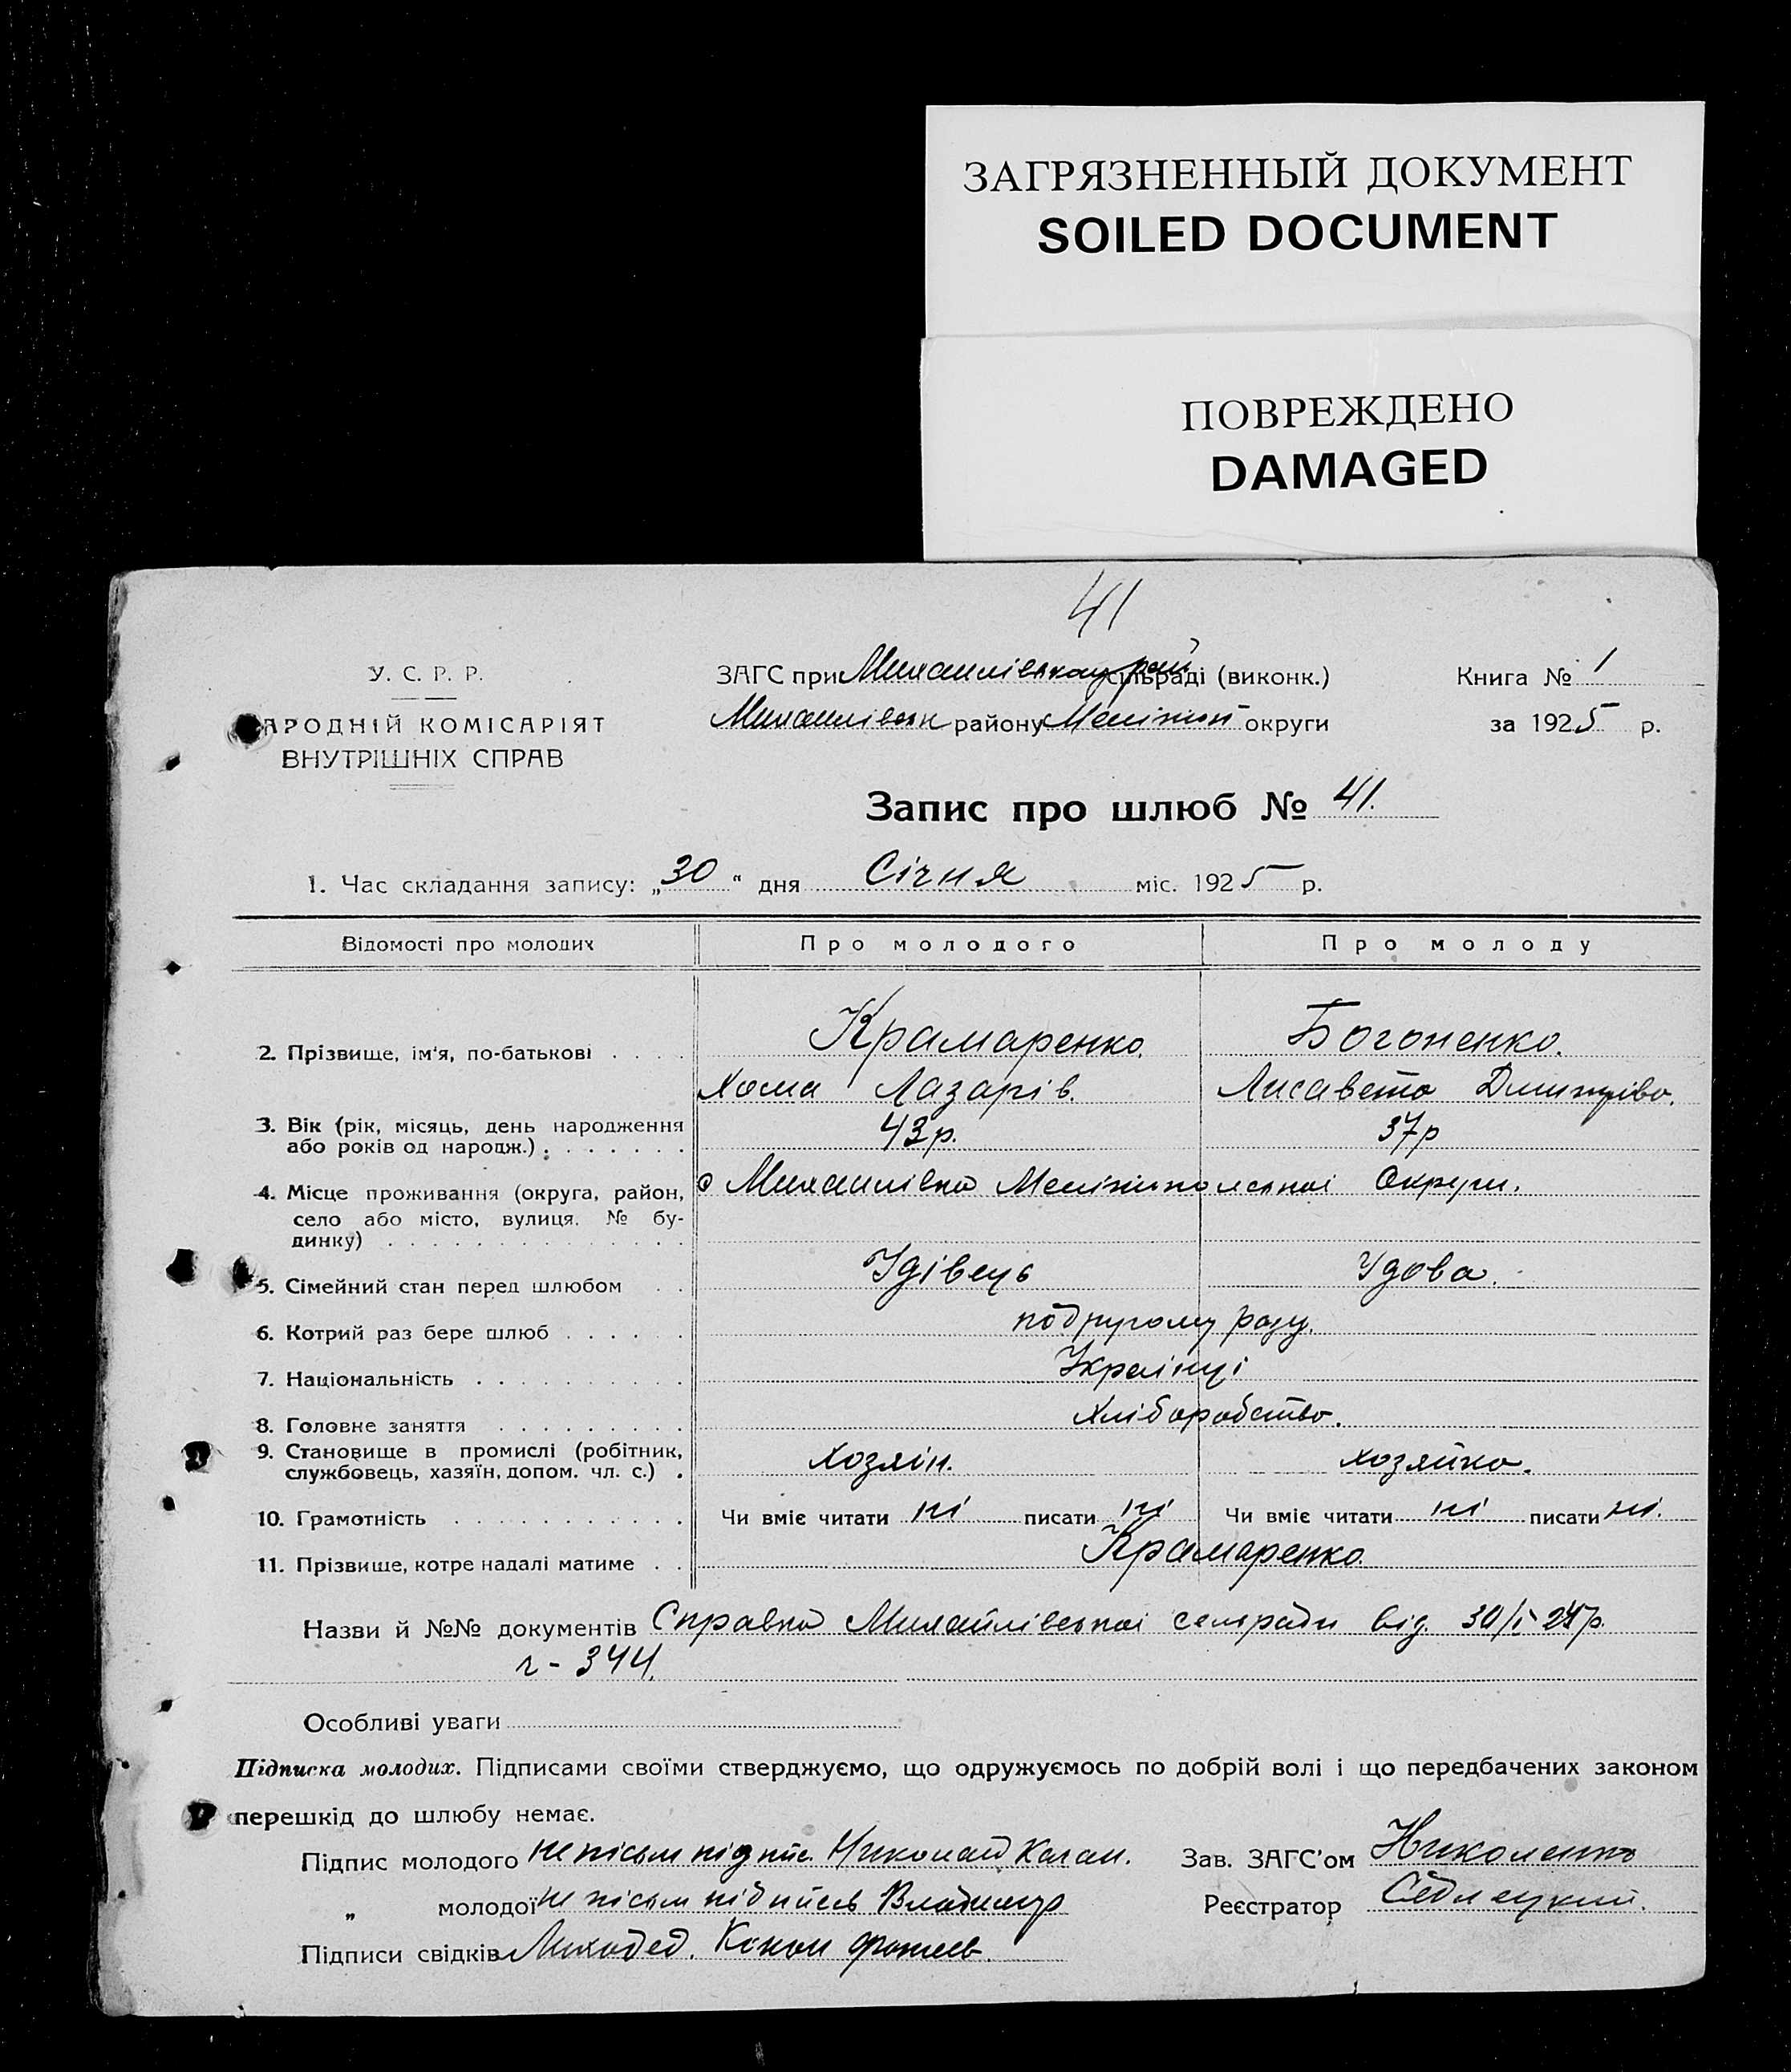 ЗАГРЯЗНЕННЫЙ ДОКУМЕНТ
SOILED DOCUMENT
ПОВРЕЖДЕНО
DAMAGED
41
У. С. Р. Р.
АРОДНІЙ КОМІСАРІЯТ
ВНУТРІШНІХ СПРАВ
ЗАГС при Михайлівськоу рай сільраді (виконк.)
Михайлівськ району Меліт округи
Книга № 1
за 1925 р.
Запис про шлюб № 41.
1. Час складання запису: „30“ дня Січня міс. 1925 р.
Відомості про молодих Про молодого Про молоду
2. Прізвище, ім'я, по-батькові Крамаренко. Богоненко.
Хома Лазарів. Лисавета Дмитріва.
3. Вік (рік, місяць, день народження 43р. 37р
або років од народж.)
4. Місце проживання (округа, район, с Михайлівка Мелітопольської Округи.
село або місто, вулиця. № бу-
динку)
5. Сімейний стан перед шлюбом Удівець Удова.
6. Котрий раз бере шлюб по другому разу.
7. Національність Українці
8. Головне заняття Хліборобство.
9. Становище в промислі (робітник, хозяїн. хозяйка.
службовець, хазяїн, допом. чл. с.)
10. Грамотність Чи вміє читати ні писати ні Чи вміє читати ні писати ні.
11. Прізвище, котре надалі матиме Крамаренко
Назви й №№ документів Справка Михайлівської сельради від 30/I-25р.
ч - 344.
Особливі уваги
Підписка молодих. Підписами своїми стверджуємо, що одружуємось по добрій волі і що передбачених законом
перешкід до шлюбу немає.
Підпис молодого не пісьм підпис Николай
Зав. ЗАГС'ом Николенко
„ молодої не пісьм підписсь Владимир
Реєстратор Седлецкий.
Підписи свідків Конон